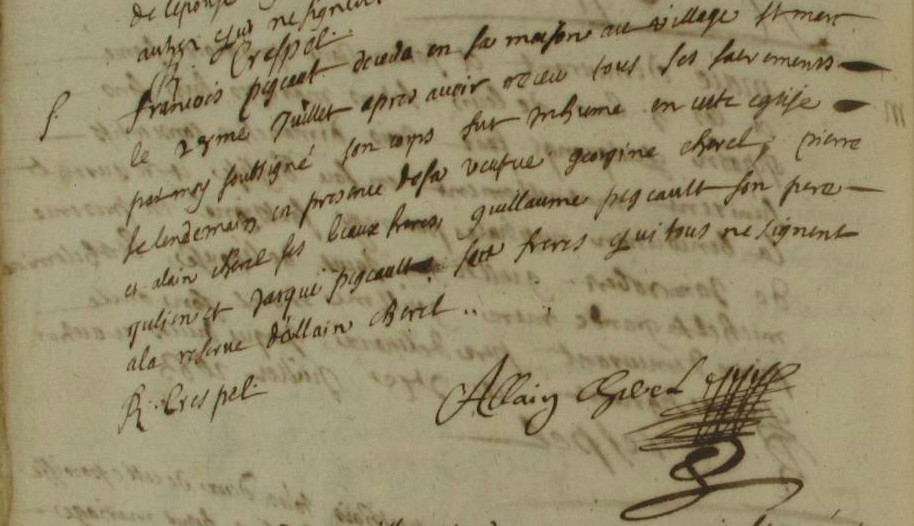 de lepouse
autres qui ne signent
R Crespel.
S. francois pigeault deceda en sa maison au village St marc
le 29me Juillet apres avoir receu tous ses sacrements
par moy soussigné son corps fut Inhumé en cette eglise
le lendemain en presence de sa veufue georgine cherel, pierre
et alain cherel ses beaux freres, guillaume pigeault son pere
qulien et Jacque pigeault ses freres qui tous ne signent
a la reserve dallain cherel ..
R. Crespel.
Allain Cherel